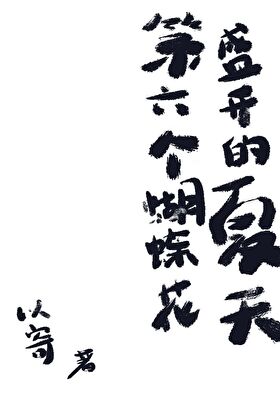 盛开的夏天
第六个蝴蝶花
以寄
著